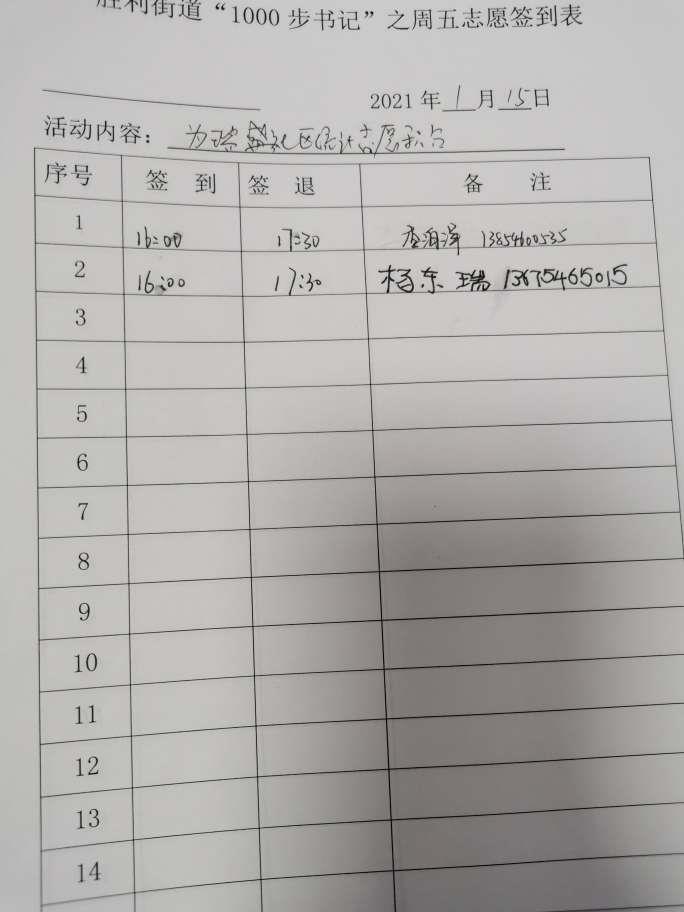 胜利街道“1000步书记”之周五志愿签到表
2021年1月15日
活动内容：为瑞 社区统计志愿积分
序号 签 到 签 退 备 注
1 16:00 17:30 13854600535
2 16:00 17:30 杨东瑞 13675465015
3
4
5
6
7
8
9
10
11
12
13
14